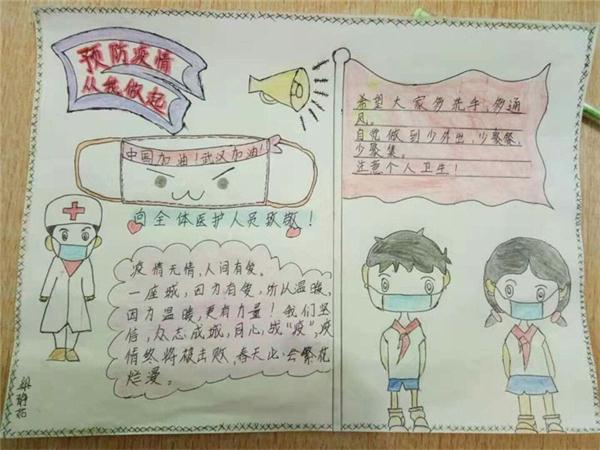 预防疫情
从我做起
中国加油！武汉加油！
向全体医护人员致敬！
疫情无情，人间有爱。
一座城，因为有爱，所以温暖，
因为温暖，更有力量！我们坚
信，众志成城，同心战“疫”，疫
情终将被击败，春天必会繁花
烂漫。
希望大家多洗手，多通
风。
自觉做到少外出，少聚餐，
少聚集。
注意个人卫生！